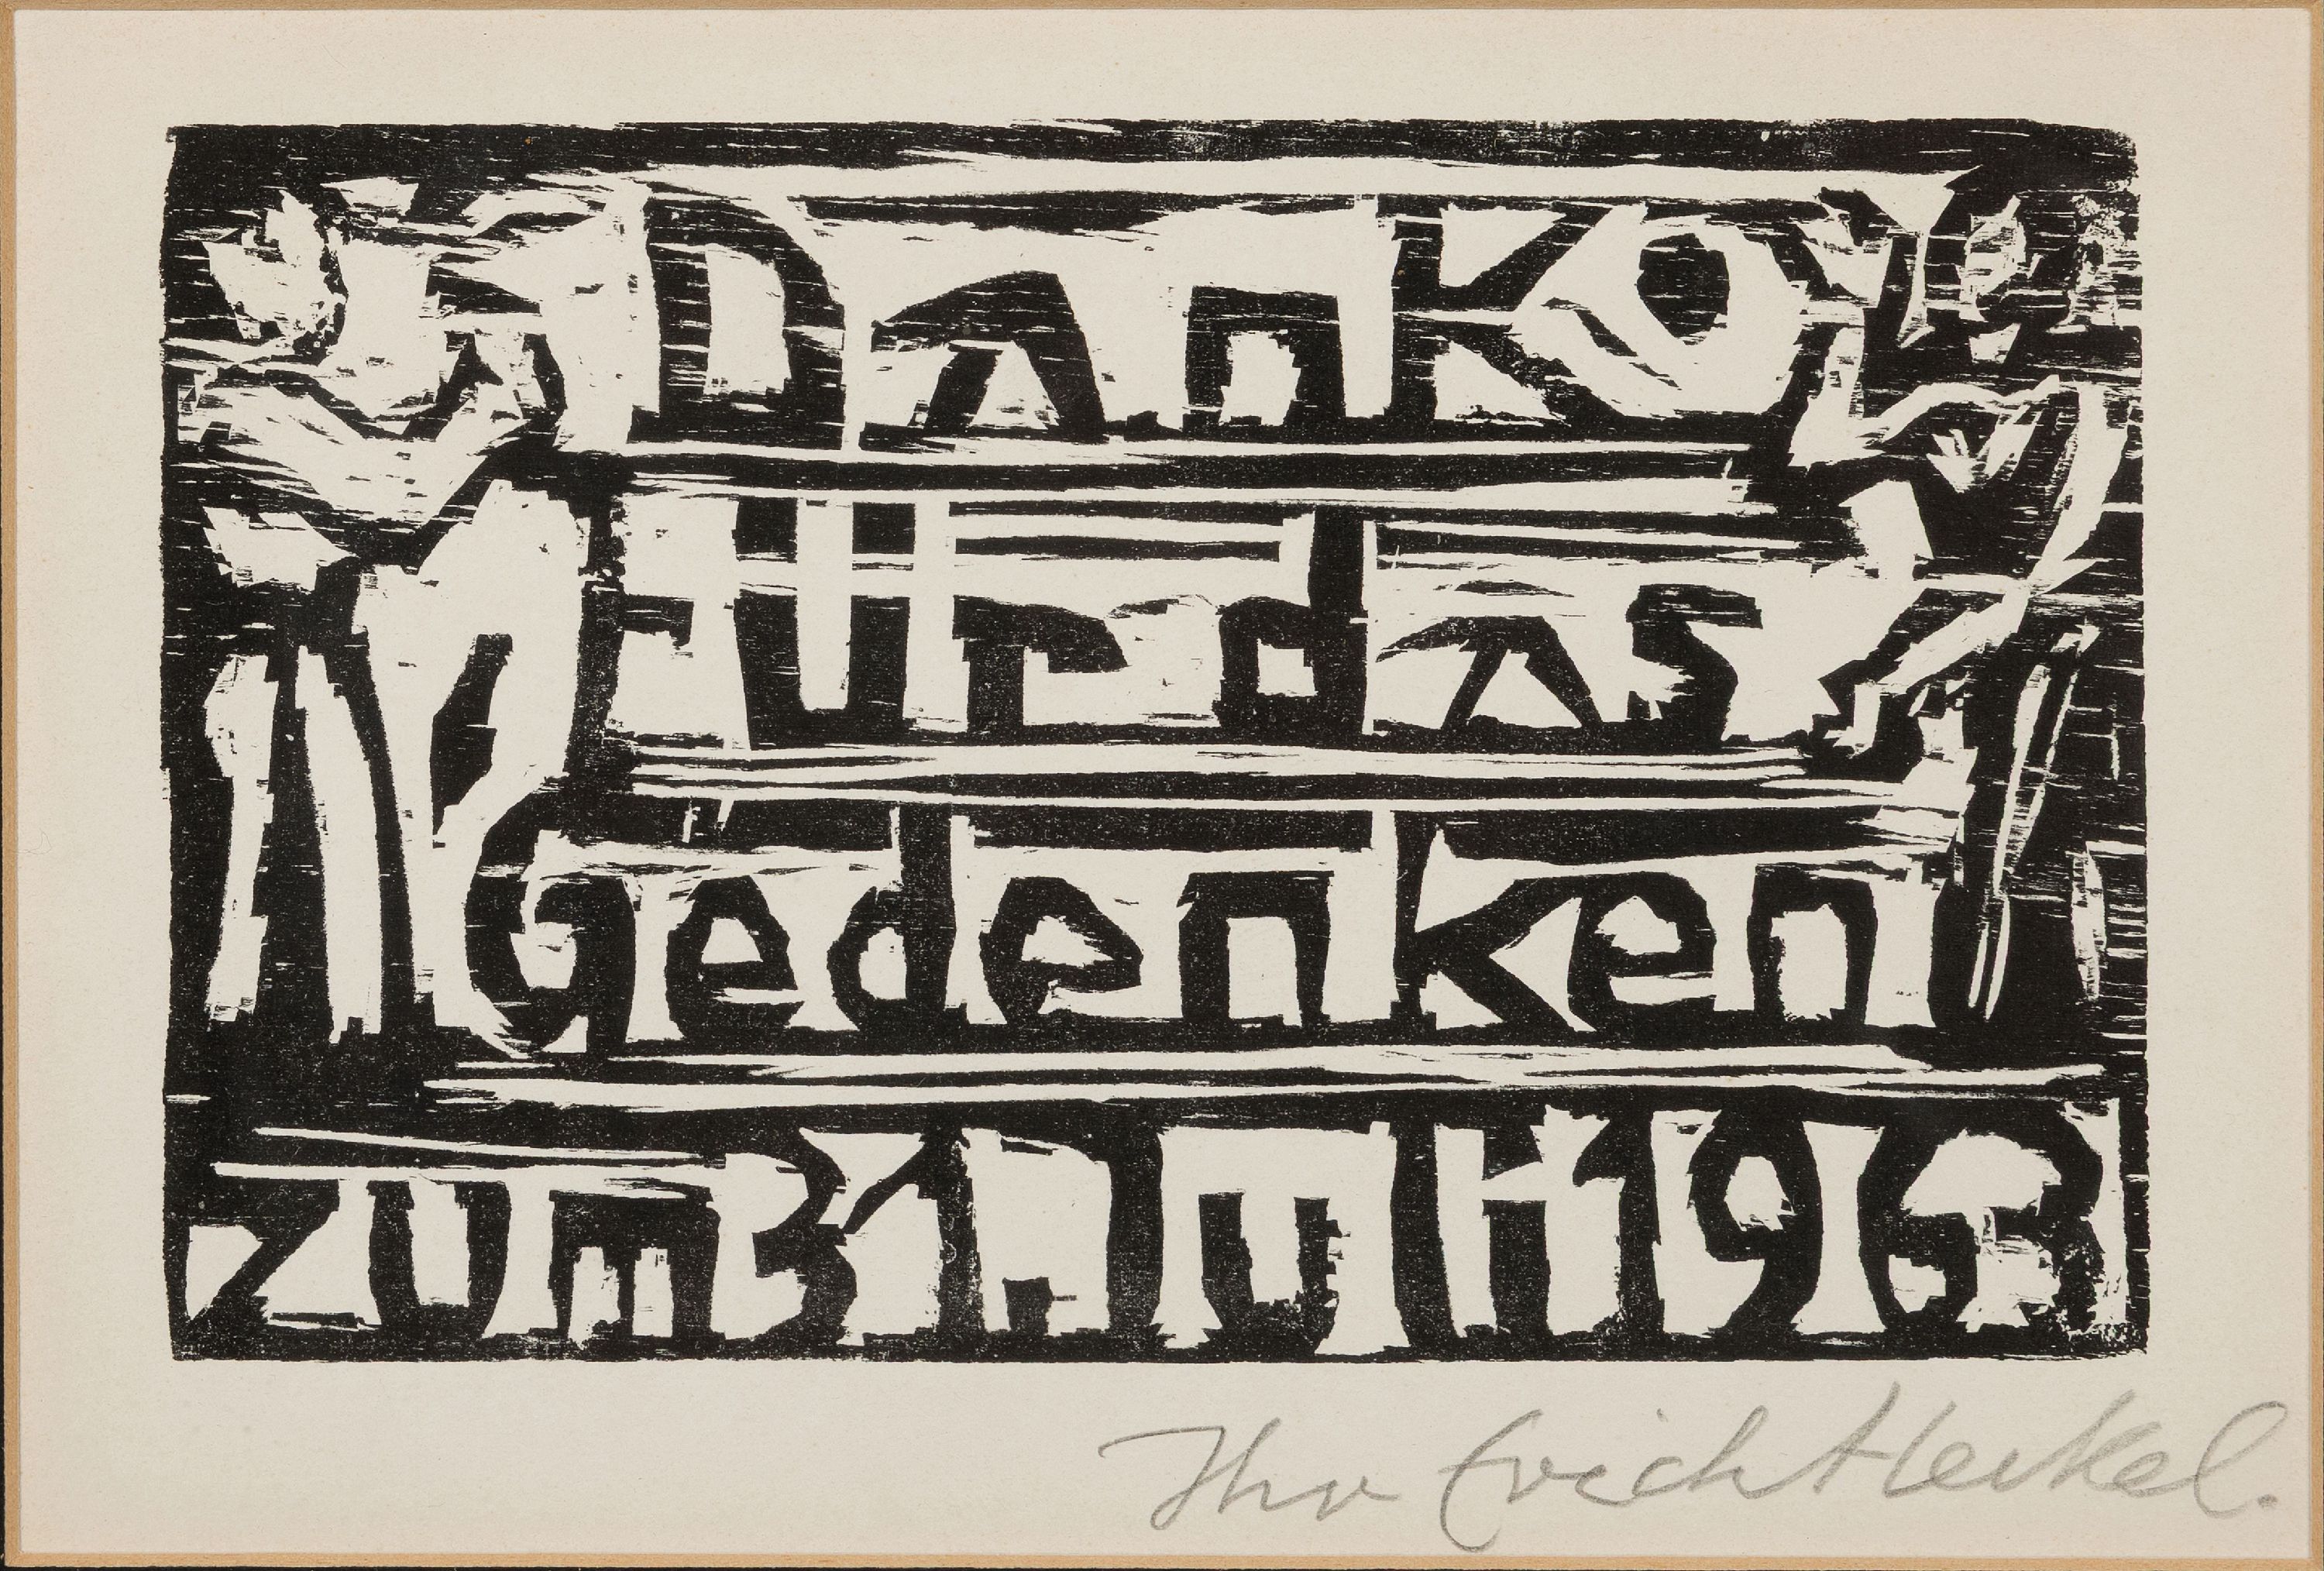 Dank
für das
Gedenken
zum 31 Juli 1963
Ihr Erich Heckel.